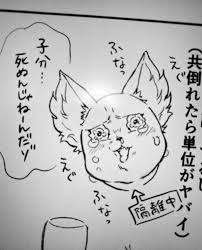 (共倒れたら単位がヤバイ)
えぐ
ふなっ
子分…
死ぬんじゃねーんだゾ
えぐ
ふなっ
隔離中